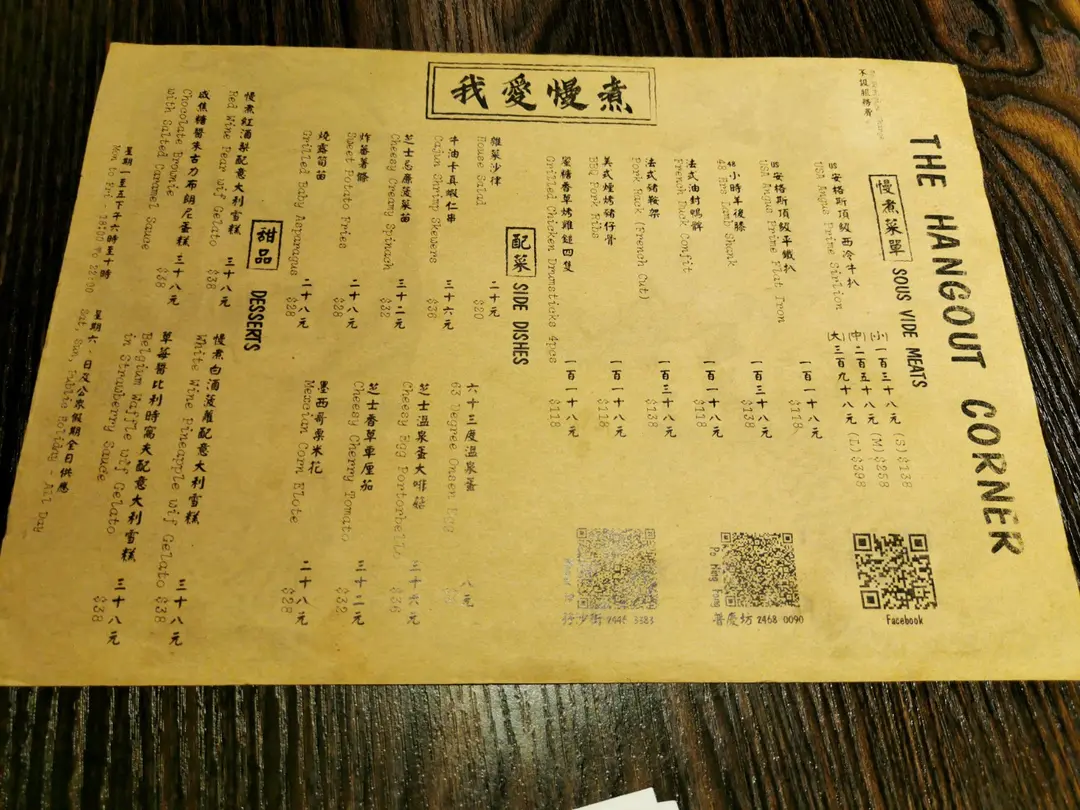 我愛慢煮
THE HANGOUT CORNER
不設服務費
慢煮菜單 SOUS VIDE MEATS
安格斯頂級西冷牛扒
USA Angus Prime Sirlion
(小) 一百三十八元 (S) $138
(中) 二百五十八元 (M) $258
(大) 三百九十八元 (L) $398
安格斯頂級平鐵扒 一百一十八元
USA Angus Prime Flat Iron $118
小時羊後膝 一百三十八元
48 Hrs Lamb Shank $138
法式油封鴨髀 一百一十八元
French Duck Confit $118
法式豬鞍架 一百三十八元
Pork Rack (French Cut) $138
美式煙烤豬仔骨 一百一十八元
BBQ Pork Ribs $118
蜜糖香草烤雞鎚四隻 一百一十八元
Grilled Chicken Drumsticks 4pcs $118
Facebook
Po Hing Fong
普慶坊 2468 0090
仔沙街 2446 3383
配菜 SIDE DISHES
雜菜沙律 二十元
House Salad $20
牛油卡真蝦仁串 三十六元
Cajun Shrimp Skewers $36
芝士忌廉菠菜苗 三十二元
Cheesy Creamy Spinach $32
炸蕃薯條 二十八元
Sweet Potato Fries $28
燒露筍苗 二十八元
Grilled Baby Asparagus $28
六十三度溫泉蛋 八元
63 Degree Onsen Egg
芝士溫泉蛋大啡菇 三十六元
Cheesy Egg Portorbello $36
芝士香草車厘茄 三十二元
Cheesy Cherry Tomato $32
墨西哥粟米花 二十八元
Mexcian Corn Elote $28
甜品 DESSERTS
慢煮紅酒梨配意大利雪糕 三十八元
Red Wine Pear wif Gelato $38
咸焦糖醬朱古力布朗尼蛋糕 三十八元
Chocolate Brownie
with Salted Caramel Sauce $38
慢煮白酒菠蘿配意大利雪糕 三十八元
White Wine Pineapple wif Gelato $38
草莓醬比利時窩夫配意大利雪糕 三十八元
Belgium Waffle wif Gelato
in Strawberry Sauce $38
星期一至五下午六時至十時
Mon to Fri - 18:00 to 22:00
星期六、日及公眾假期全日供應
Sat, Sun, Public Holiday - All Day